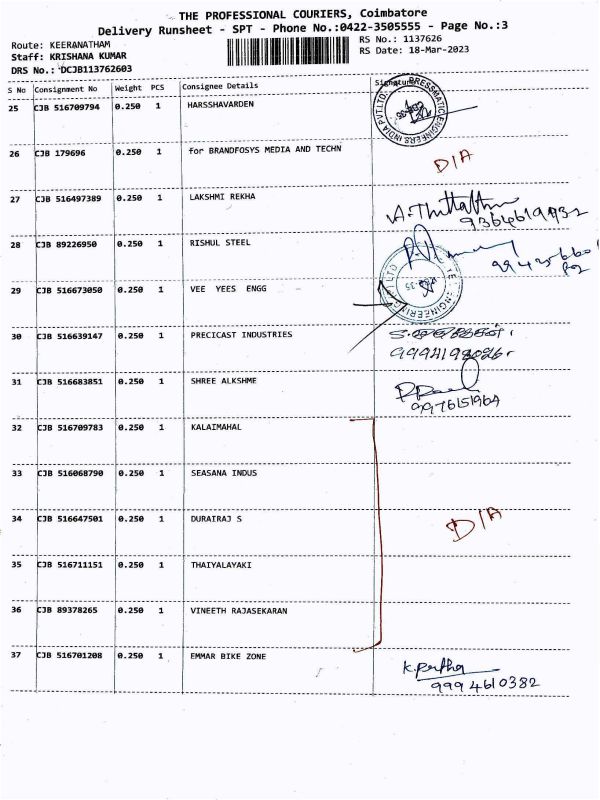 THE PROFESSIONAL COURIERS, Coimbatore
Delivery Runsheet - SPT - Phone No.:0422-3505555 - Page No.:3
Route: KEERANATHAM
RS No.: 1137626
Staff: KRISHANA KUMAR
RS Date: 18-Mar-2023
DRS No.: DCJB113762603
S No Consignment No Weight PCS Consignee Details Signature
25 CJB 516709794 0.250 1 HARSSHAVARDEN
PRESSMATIC ENGINEERS INDIA PVT.LTD.
26 CJB 179696 0.250 1 for BRANDFOSYS MEDIA AND TECHN D/A
27 CJB 516497389 0.250 1 LAKSHMI REKHA
28 CJB 89226950 0.250 1 RISHUL STEEL
29 CJB 516673050 0.250 1 VEE YEES ENGG
30 CJB 516639147 0.250 1 PRECICAST INDUSTRIES
31 CJB 516683851 0.250 1 SHREE ALKSHME
9976151964
32 CJB 516709783 0.250 1 KALAIMAHAL
33 CJB 516068790 0.250 1 SEASANA INDUS
34 CJB 516647501 0.250 1 DURAIRAJ S D/A
35 CJB 516711151 0.250 1 THAIYALAYAKI
36 CJB 89378265 0.250 1 VINEETH RAJASEKARAN
37 CJB 516701208 0.250 1 EMMAR BIKE ZONE
K.Partha
9994610382